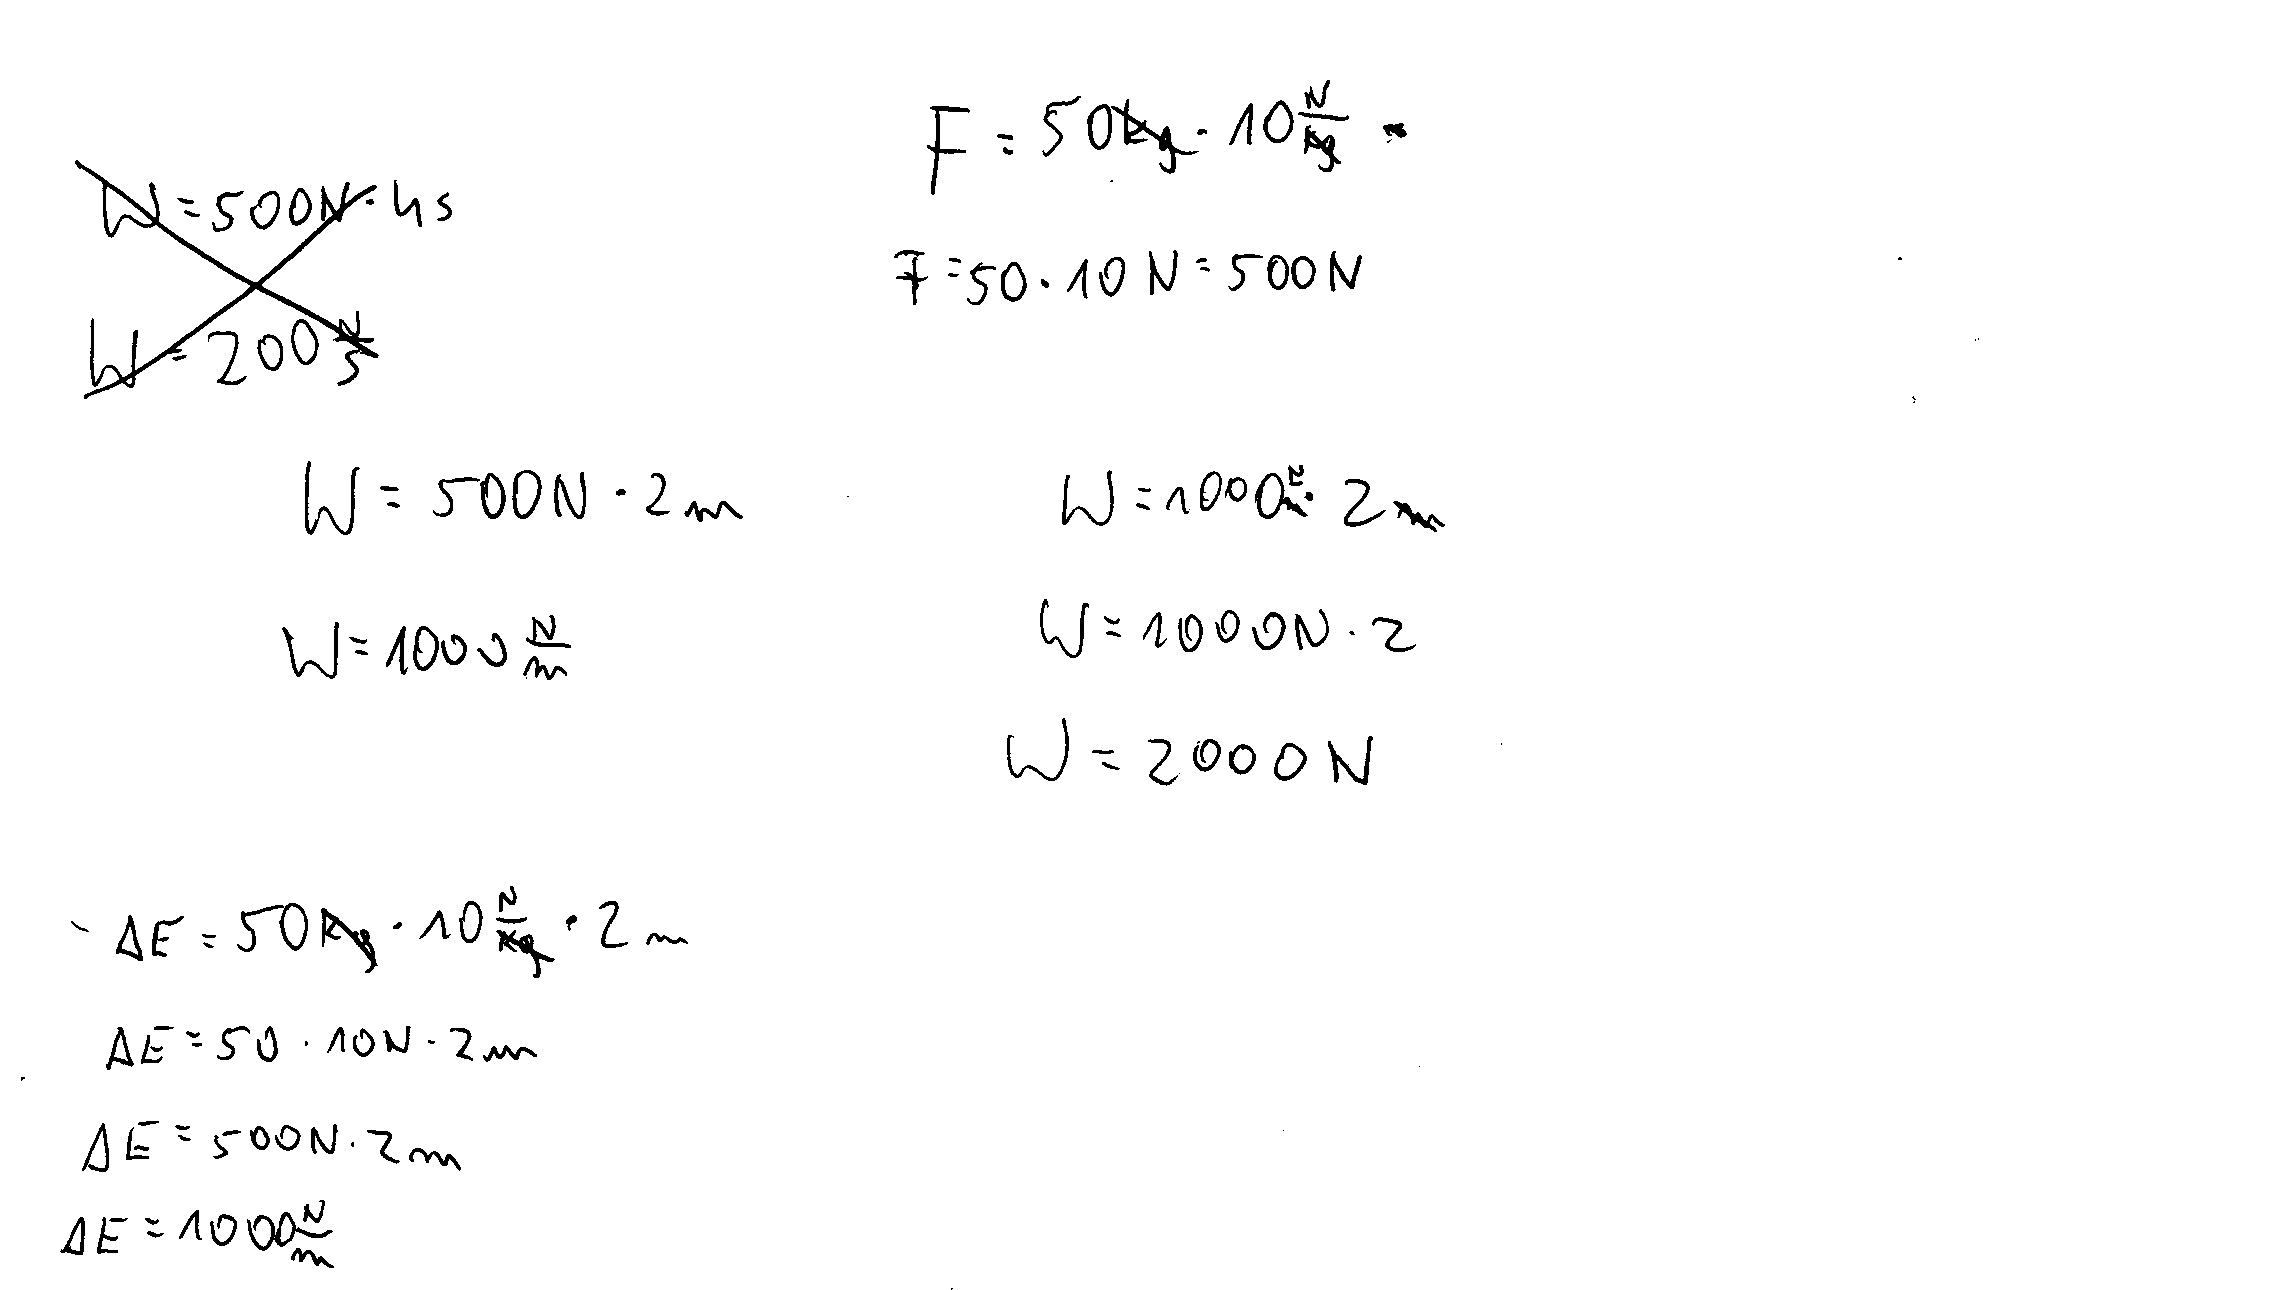 F = 50kg · 10 N/kg
W = 500N · 4s
F = 50 · 10 N = 500N
W = 200 N/s
W = 500N · 2m
W = 1000 N/m · 2m
W = 1000 N/m
W = 1000N · 2
W = 2000N
ΔE = 50kg · 10 N/kg · 2m
ΔE = 50 · 10N · 2m
ΔE = 500N · 2m
ΔE = 1000 N/m